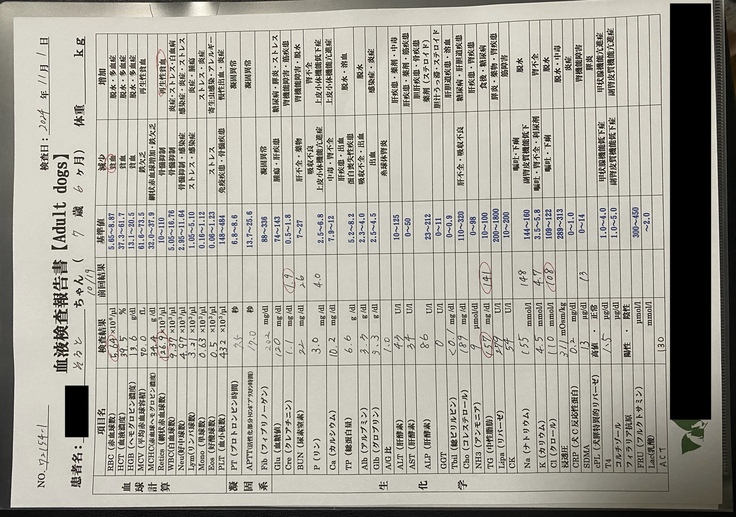 NO. 02154-1
血液検査報告書【Adult dogs】
検査日: 2024 年 11月 1 日
患者名:
そると ちゃん ( 7 歳 6 ヶ月) 体重 kg
10/19
項目名 検査結果 前回結果 基準値 減少 増加
血球計算
RBC (赤血球数) 5.64 ×10⁶/μl 5.65~8.87 貧血 脱水・多血症
HCT (血液濃度) 39.5 % 37.3~61.7 貧血 脱水・多血症
HGB (ヘモグロビン濃度) 13.6 g/dl 13.1~20.5 貧血 脱水・多血症
MCV (平均赤血球容積) 70.0 fL 61.6~73.5 鉄欠乏 再生性貧血
MCHC(赤血球ヘモグロビン濃度) 34.4 g/dl 32.0~37.9 網状赤血球増加・鉄欠乏
Retics (網状赤血球数) 126.9 ×10³/μl 10~110 骨髄抑制 再生性貧血
WBC(白血球数) 9.37 ×10³/μl 5.05~16.76 骨髄抑制 炎症・ストレス・白血病
Neu(好中球数) 4.97 ×10³/μl 2.95~11.64 骨髄抑制・感染症 感染症・炎症・ストレス
Lym(リンパ球数) 3.21 ×10³/μl 1.05~5.10 ストレス・感染症 炎症・腫瘍
Mono (単球数) 0.63 ×10³/μl 0.16~1.12 ストレス・炎症
Eos (好酸球数) ×10³/μl 0.06~1.23 ストレス 寄生虫感染・アレルギー
PLT (血小板数) 432 ×10³/μl 148~484 免疫疾患・骨髄疾患 慢性出血・炎症
凝固系
PT (プロトロンビン時間) 秒 6.8~8.6 凝固異常
APTT(活性化部分トロンボプラスチン時間) 秒 13.7~25.6 凝固異常
Fib (フィブリノーゲン) mg/dl 88~336 凝固異常
生化学
Glu (血糖値) 120 mg/dl 74~143 腫瘍・肝疾患 糖尿病・腎疾患・ストレス
Cre (クレアチニン) 1.1 mg/dl 1.9 0.5~1.8 腎機能障害・筋疾患
BUN (尿素窒素) 22 mg/dl 26 7~27 肝不全・薬物 腎機能障害・脱水
P (リン) 3.0 mg/dl 4.0 2.5~6.8 吸収不良 腎不全
Ca (カルシウム) 10.2 mg/dl 7.9~12 上皮小体機能亢進症
TP (総蛋白量) 6.6 g/dl 5.2~8.2 脱水・溶血
Alb (アルブミン) g/dl 2.3~4.0 肝疾患・出血 脱水
Glb (グロブリン) 3.3 g/dl 2.5~4.5 出血 感染症・炎症
A/G比 1.0
ALT (肝酵素) 43 U/l 10~125 肝疾患・薬剤・中毒
AST (肝酵素) 34 U/l 0~50 肝疾患・薬剤・筋疾患
ALP (肝酵素) 86 U/l 23~212
GGT 0 U/l 0~11
Tbil (総ビリルビン) mg/dl 0~0.9
Cho (コレステロール) mg/dl 110~320 肝不全・吸収不良 糖尿病・肝胆道疾患
NH3 (アンモニア) 9 μmol/dl 0~98 肝疾患・腎疾患
TG (中性脂肪) mg/dl 141 10~100 食後・糖尿病
Lipa (リパーゼ) U/l 200~1800 膵炎・薬物・腎疾患
CK 54 U/l 10~200 筋障害
Na (ナトリウム) 155 mmol/l 148 144~160 嘔吐・下痢 脱水
K (カリウム) 4.5 mmol/l 4.7 3.5~5.8 嘔吐・腎不全・利尿剤 腎不全
Cl (クロール) 110 mmol/l 108 109~122 嘔吐・下痢 脱水
浸透圧 311 mOsm/kg 289~313 脱水・中毒
CRP (犬C反応性蛋白) 0.2 mg/dl 0~1.0 炎症
SDMA 13 μg/dl 13 0~14 腎機能障害
cPL (犬膵特異的リパーゼ) 高値 ・ 正常 膵炎
T4 1.5 μg/dl 1.0~4.0 甲状腺機能低下症 甲状腺機能亢進症
コルチゾール μg/dl 1.0~5.0 副腎皮質機能低下症 副腎皮質機能亢進症
フィラリア抗原 陽性 ・ 陰性
FRU (フルクトサミン) μmol/l 300~450
Lac(乳酸) mmol/l ~2.0
ACT 130